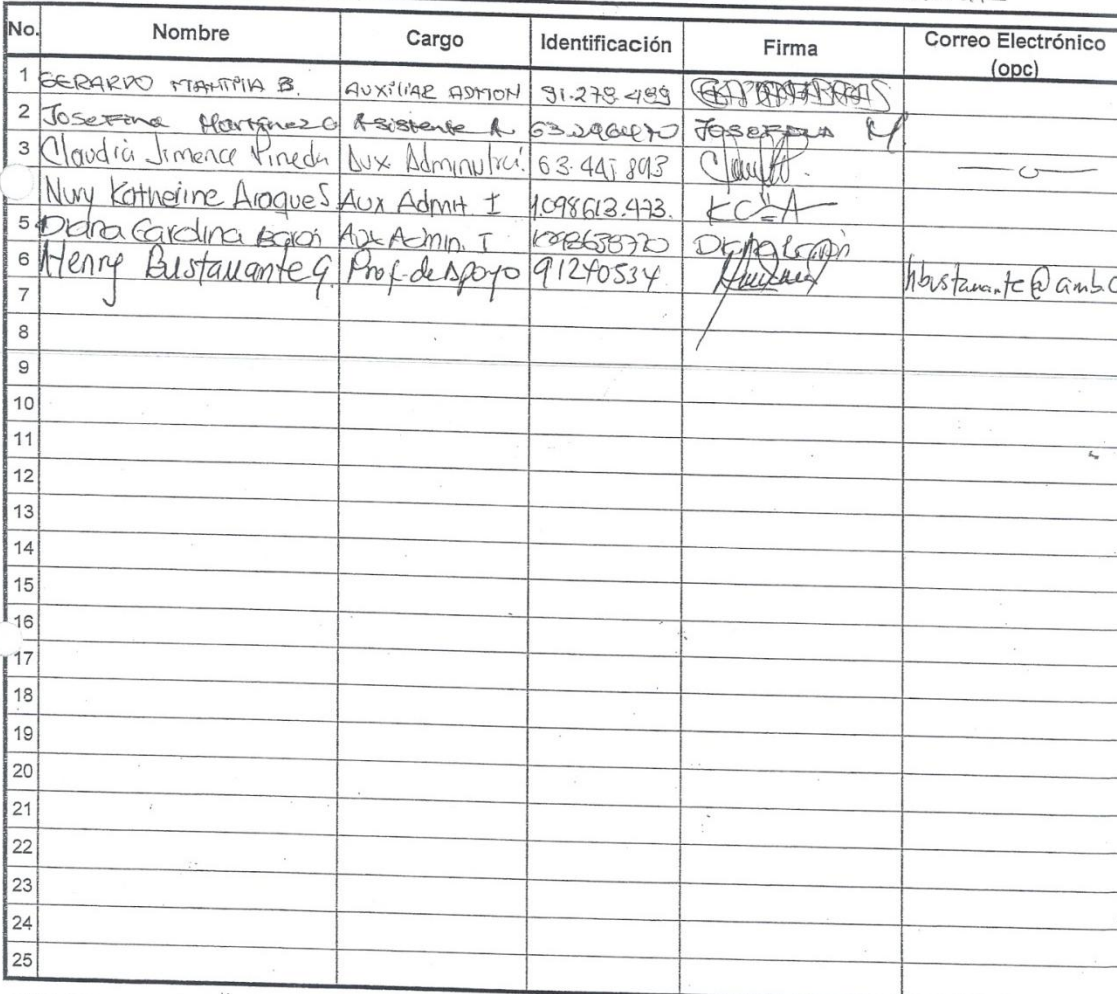 No. Nombre Cargo Identificación Firma Correo Electrónico (opc)
1 GERARDO MANTILLA B. AUXILIAR ADMON 91.278.499
2 Josefina Martinez G Asistente A Josefina M.
3 Claudia Jimena Pineda Aux Administraci 63.445 893
Nury Katherine Araque S Aux Admit I 1.098613.473.
5 Diana Carolina Barón Aux Admin. I 1098638720
6 Henry Bustamante G. Prof. de Apoyo 91240534 hbustamante@amb.c
7
8
9
10
11
12
13
14
15
16
17
18
19
20
21
22
23
24
25